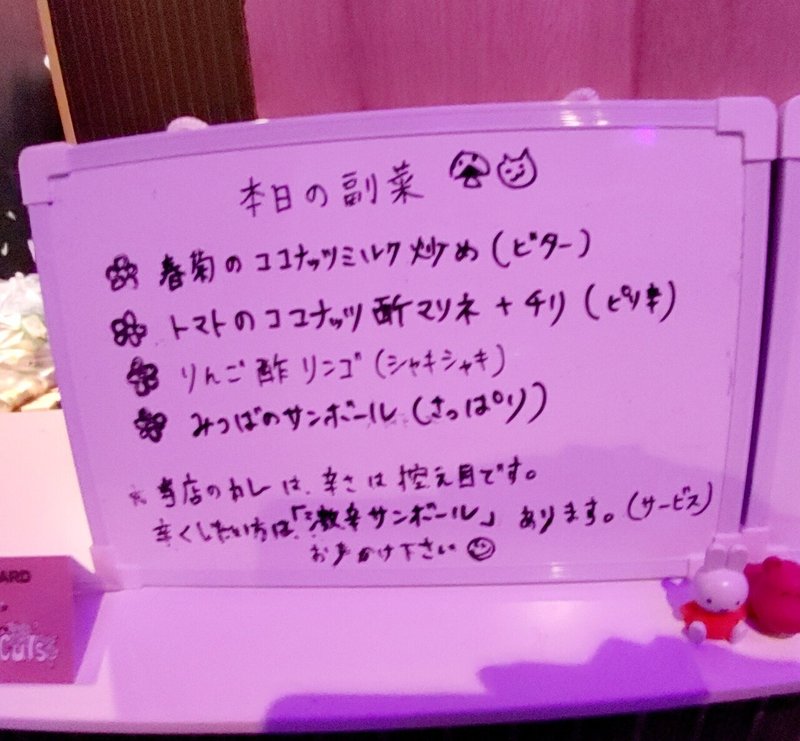 本日の副菜
春菊のココナッツミルク炒め(ビター)
トマトのココナッツ酢マリネ+チリ(ピリ辛)
りんご酢リンゴ(シャキシャキ)
みつばのサンボール(さっぱり)
※当店のカレーは、辛さは控え目です。
辛くしたい方は、「激辛サンボール」あります。(サービス)
お声かけ下さい
ARD
Cuts